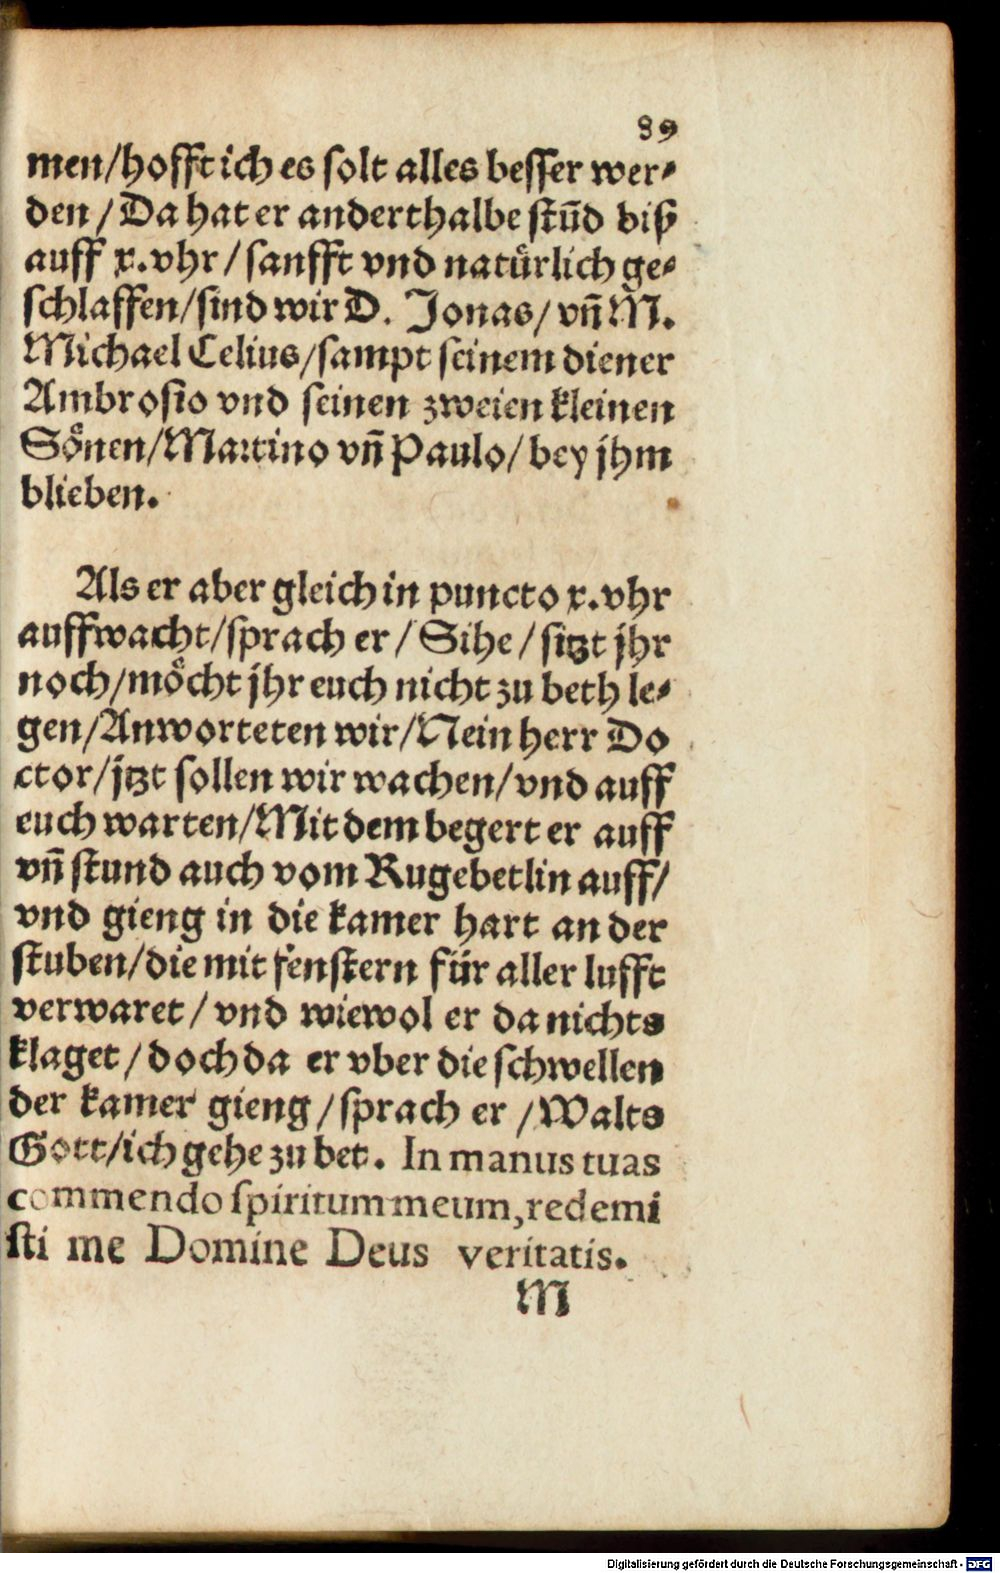 89
men/hofft ich es solt alles besser wer⸗
den / Da hat er anderthalbe stūd biß
auff x.vhr / sanfft vnd natürlich ge⸗
schlaffen/sind wir D. Jonas/ vñ M.
Michael Celius/sampt seinem diener
Ambrosio vnd seinen zweien kleinen
Sönen/Martino vñ Paulo/ bey jhm
blieben.
Als er aber gleich in puncto x.vhr
auffwacht/sprach er / Sihe / sitzt jhr
noch/möcht jhr euch nicht zu beth le⸗
gen/Anworteten wir/Nein herr Do
ctor/jtzt sollen wir wachen/vnd auff
euch warten/Mit dem begert er auff
vñ stund auch vom Rugebetlin auff/
vnd gieng in die kamer hart an der
stuben/die mit fenstern für aller lufft
verwaret / vnd wiewol er da nichts
klaget / doch da er vber die schwellen
der kamer gieng /sprach er /Walts
Gott/ich gehe zu bet. In manus tuas
commendo spiritum meum,redemi
sti me Domine Deus veritatis.
M
Digitalisierung gefördert durch die Deutsche Forschungsgemeinschaft - DFG